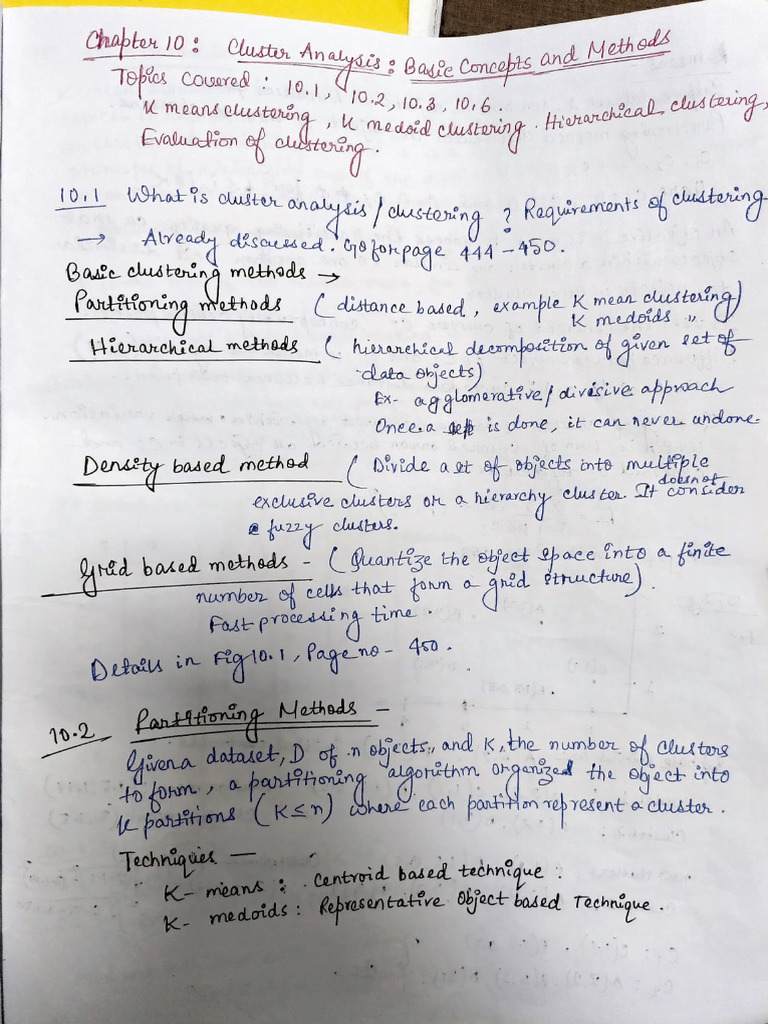 Chapter 10: Cluster Analysis: Basic Concepts and Methods
Topics Covered: 10.1, 10.2, 10.3, 10.6.
K means clustering, K medoid clustering. Hierarchical clustering,
Evaluation of clustering.
10.1 What is cluster analysis/clustering? Requirements of clustering
→ Already discussed. Go for page 444-450.
Basic clustering methods →
Partitioning methods (distance based, example K mean clustering)
K medoids "
Hierarchical methods (hierarchical decomposition of given set of
data objects)
Ex- agglomerative/divisive approach
Once a is done, it can never undone.
Density based method (Divide a set of objects into multiple
exclusive clusters or a hierarchy cluster. It does not consider
fuzzy clusters.
Grid based methods - (Quantize the object space into a finite
number of cells that form a grid structure).
Fast processing time.
Details in Fig 10.1, Page no - 450.
10.2 Partitioning Methods -
Given a dataset, D of n objects, and K, the number of clusters
to form, a partitioning algorithm organizes the object into
K partitions (K≤n) where each partition represent a cluster.
Techniques —
K-means: Centroid based technique.
K-medoids: Representative Object based Technique.